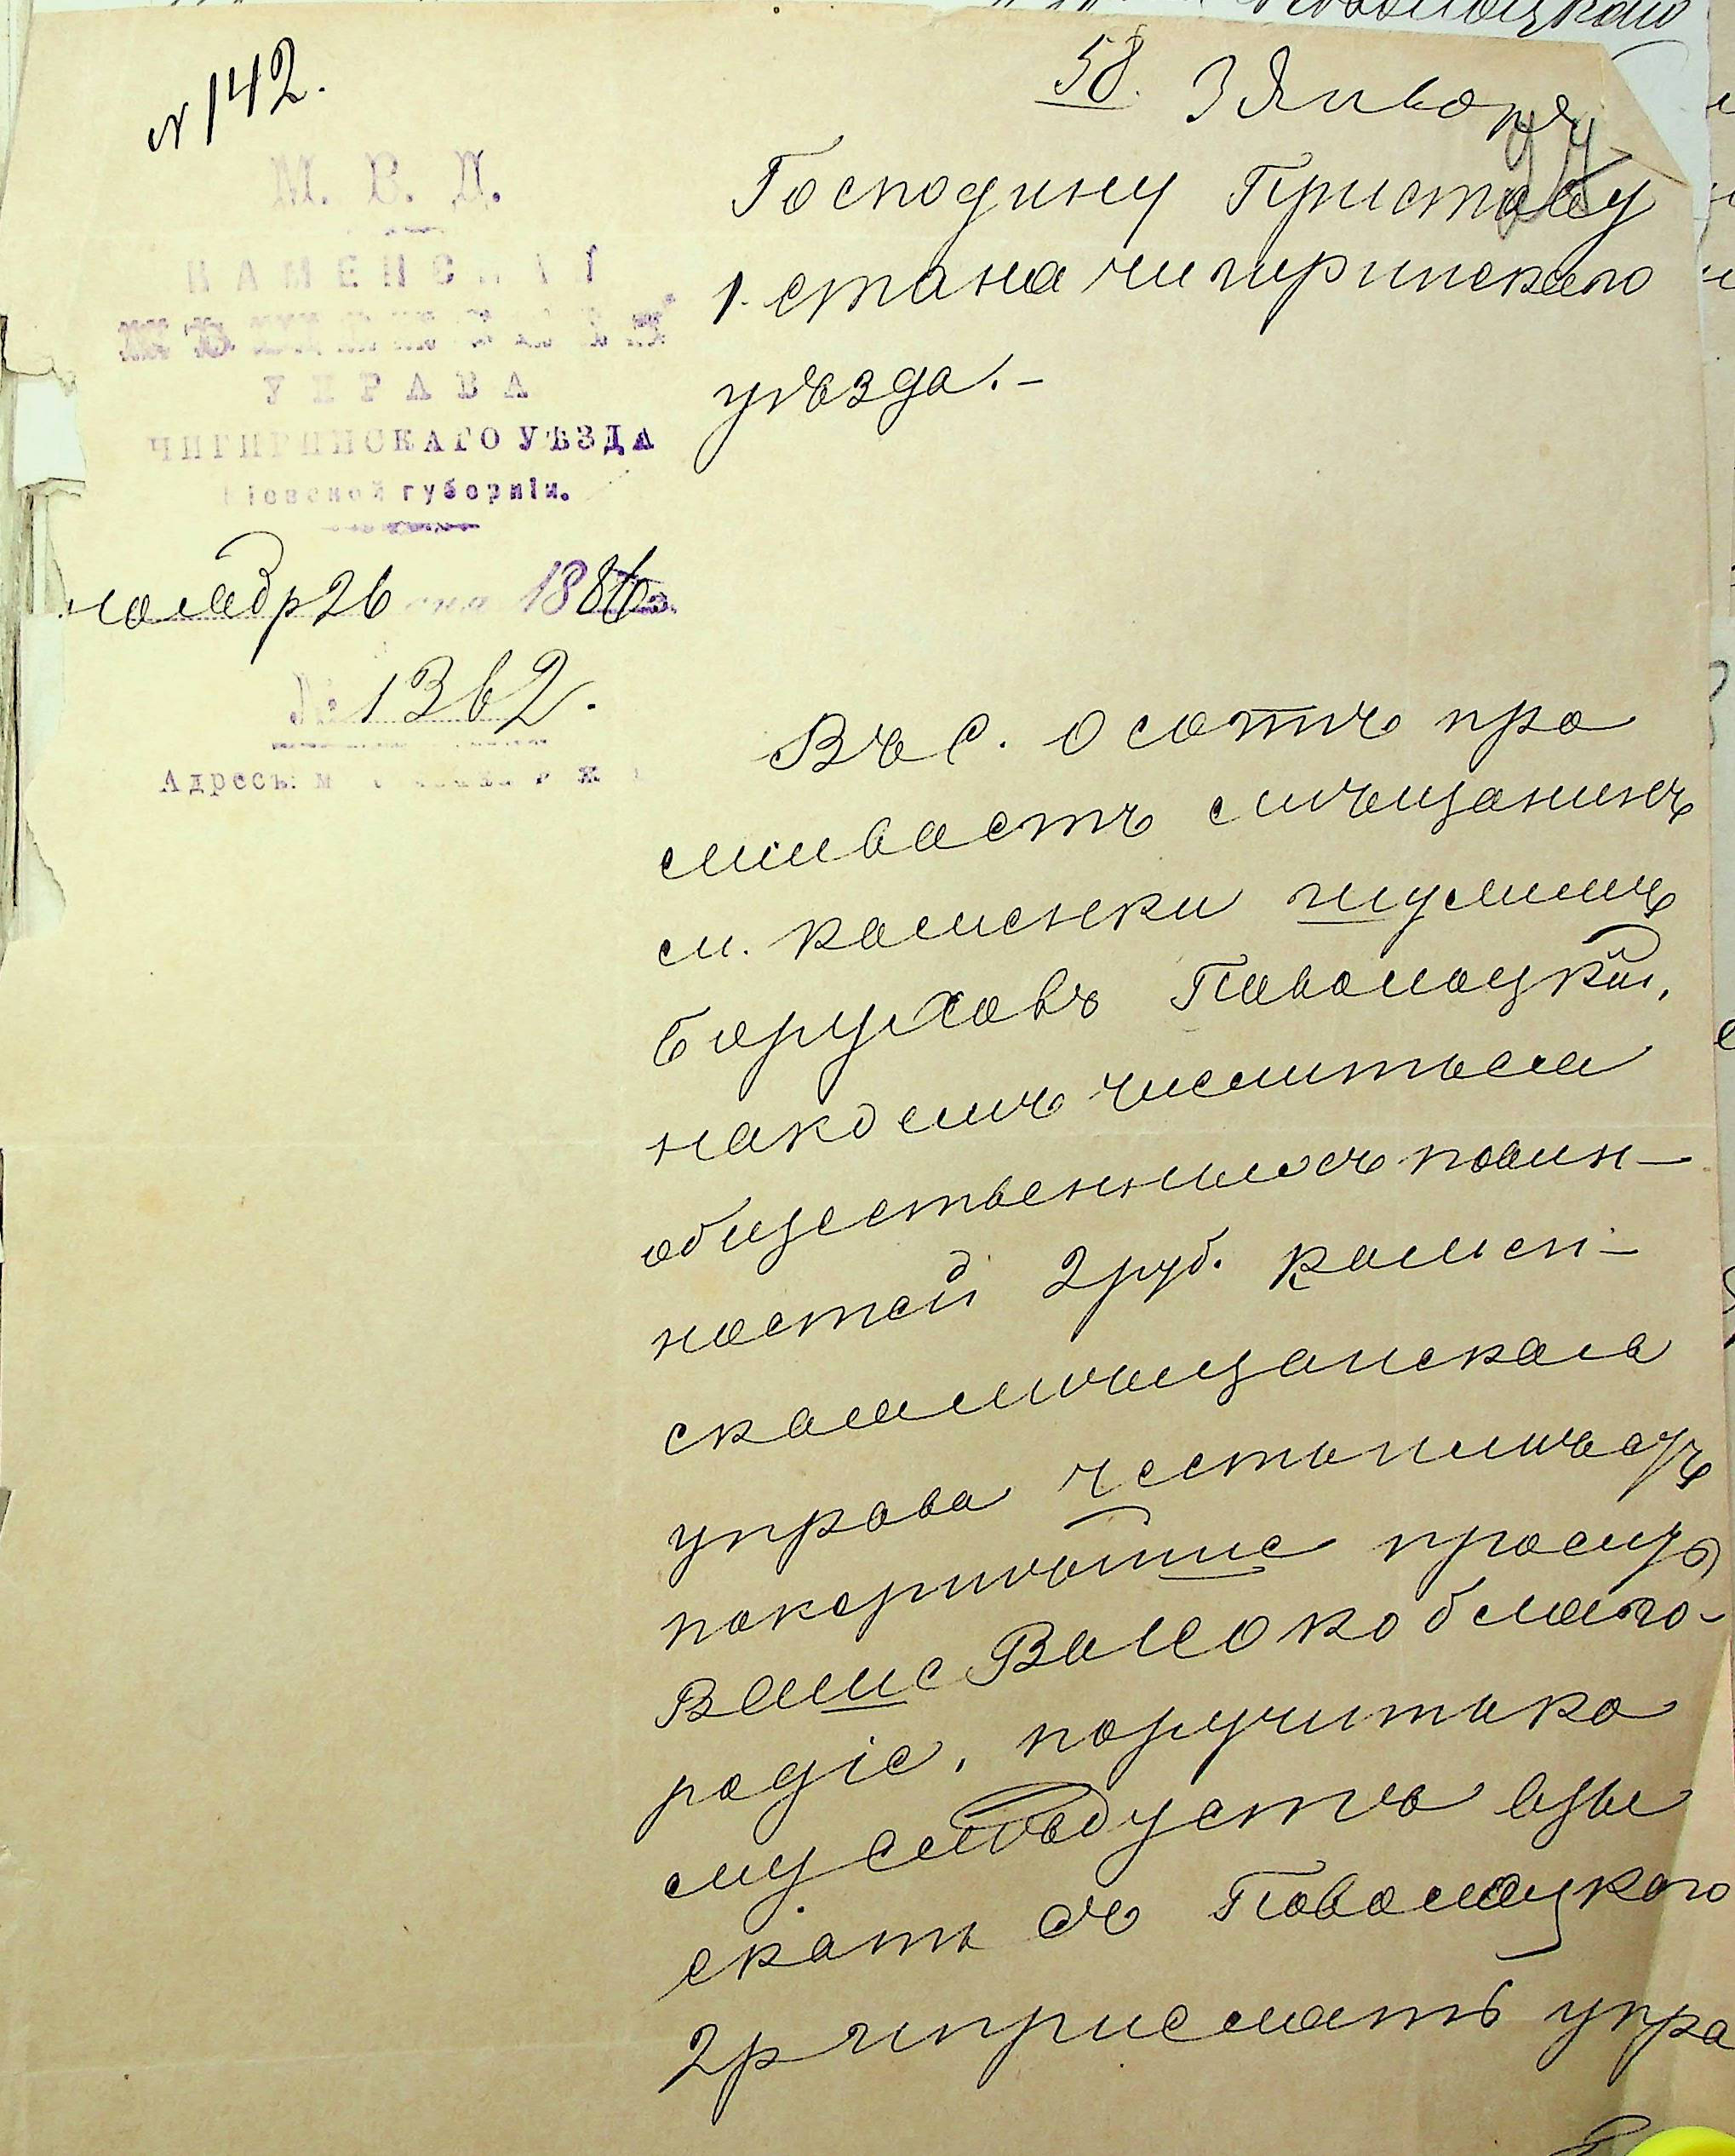 № 142.
58. 3 Января
24
М. В. Д.
КАМЕНС
УПРАВА
ЧИГИРИНСКАГО УѢЗДА
Кіевской губерніи.
ноябр 26 дня 1886 г.
№ 1362.
Адресъ: м
Господину Приставу
1. стана чигиринскаго
уѣзда.–
Въ с. Осотѣ про
живаетъ мѣщанинъ
м. каменки шулимъ
Боруховъ Поволоцкій,
накоемъ числиться
общественныхъ повин–
ностей 2 руб. камен–
скаямѣщанская
управа честьимѣетъ
покорнѣйше просить
Ваше Высокоблаго–
родіе, поручитько
му слѣдуетъ взы
скать съ Поволоцкого
2 р иприслать упра